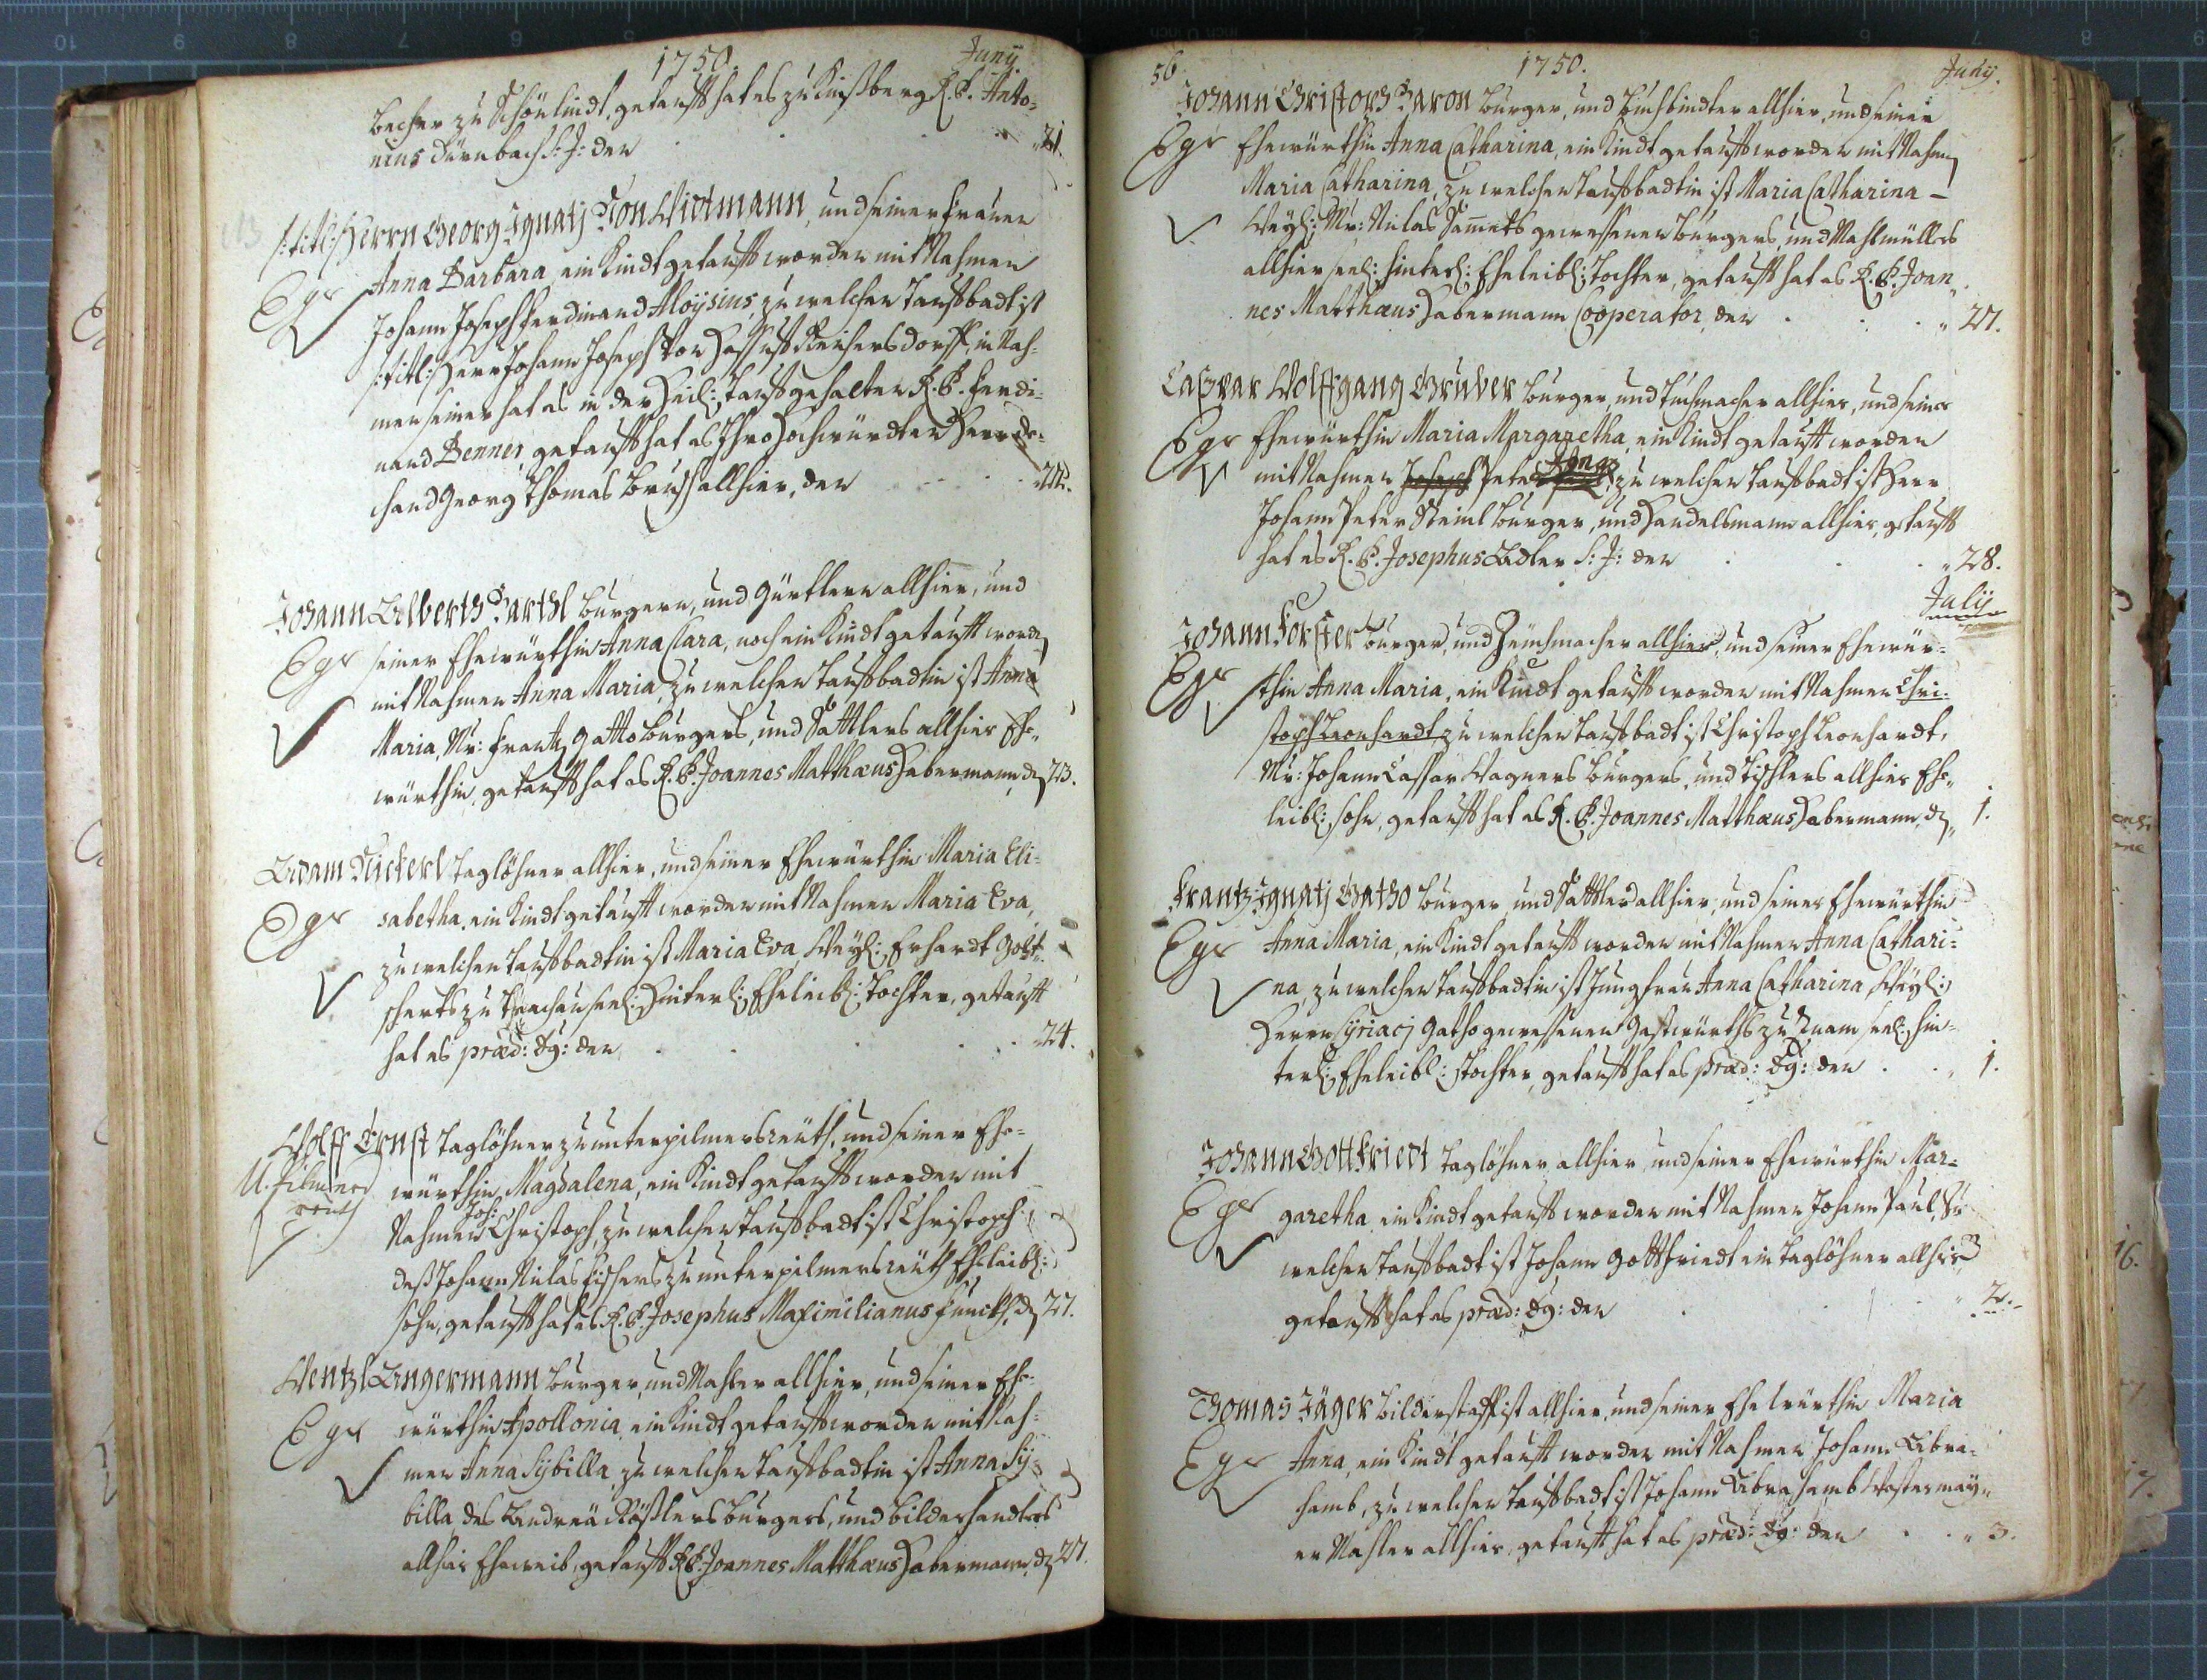 1750. Juny
becher zu Schönlindt, getaufft hat es zu Kinßberg R. P. Anto=
nius Dürnbach S: J: den 21.
/: titl: / Herrn Georg Ignatj Von Widtmann, und seiner frauen
Eger Anna Barbara ein Kindt getaufft worden mit Nahmen
Johann Joseph Ferdinand Aloÿsius, zu welchen Taufbadt ist
/: titl: / Herr Johann Joseph von reichersdorff, in Nah=
men seiner hat es in der Heil: Tauf gehalten R. P. Ferdi=
nand Benner, getaufft hat es Ihro Hochwürden Herr de=
chand Georg Thomas Brusch allhier, den 22.
Johann Adalberth Barthl burgern, und Gürtlern allhier, und
Eger seiner Ehewürthin Anna Clara, noch ein Kindt getaufft worden
mit Nahmen Anna Maria, zu welchen taufbadtin ist Anna
Maria, Mr: Frantz Gatto burgers, und Sattlers allhier Ehe=
würthin, getaufft hat es R. P. Joannes Matthæus Habermann, den 23.
Adam Nickerl Taglöhner allhier, und seiner Ehewürthin Maria Eli=
Eger sabetha, ein Kindt getaufft worden mit Nahmen Maria Eva,
zu welchen taufbadtin ist Maria Eva Weyl: Erhardt Gott=
scherts zu seel: Hinterl: Eheleibl: Tochter, getaufft
hat es præd: dg: den 24.
Wolff Ernst taglöhner zu unterpilmersreüth, und seiner Ehe=
U. pilmers würthin Magdalena, ein Kindt getaufft worden mit
reuth Nahmen Joh: Christoph, zu welchen taufbadt ist Christoph
deß Johann Niclas Fischers zu unterpilmersreüth Eheleibl:
sohn, getaufft hat es R. P. Josephus Maximilianus Funck, den 27.
Wentzl Angermann burger, und Mahler allhier, und seiner Ehe=
Eger würthin Apollonia, ein Kindt getaufft worden mit Nah=
men Anna Sÿbilla, zu welchen taufbadtin ist Anna Sÿ=
billa des Andreä Rößlers burgers, und bilderhandlers
allhier Eheweib, getaufft R. P. Joannes Matthæus Habermann, den 27.
56 1750. Juny.
Johann Christoph Baron burger, und buchbindter allhier, und seiner
Eger Ehewürthin Anna Catharina, ein Kindt getaufft worden mit Nahmen
Maria Catharina, zu welchen taufbadtin ist Maria Catharina
Weyl: Mr: Niclas Sam̄ets gewessenen burgers, und Mahlmüllers
allhier seel: hinterl: Eheleibl: tochter, getaufft hat es R. P. Joan=
nes Matthæus Habermann Cooperator, den 27.
Caspar Wolffgang Gruber burger, und tuchmacher allhier, und seiner
Eger Ehewürthin Maria Margaretha, ein Kindt getaufft worden
mit Nahmen Joseph Peter zu welchen taufbadt ist Herr
Johann Peter Steinl burger, und Handelsmann allhier, getaufft
hat es R. P. Josephus Adler S: J: den 28.
Julij
Johann Forster burger, und Zeuchmacher allhier, und seiner Ehewür=
Eger thin Anna Maria, ein Kindt getaufft worden mit Nahmen Chri=
stoph Leonhardt, zu welchen taufbadt ist Christoph Leonhardt,
Mr: Johann Cassar Wagners burgers, und tischlers allhier Ehe=
leibl: sohn, getaufft hat es R. P. Joannes Matthæus Habermann, den 1.
Frantz Ignatj Gatho burger, und Sattler allhier, und seiner Ehewürthin
Eger Anna Maria, ein Kindt getaufft worden mit Nahmen Anna Cathari=
na, zu welchen taufbadtin ist Jungfrau Anna Catharina, Weyl:
Herrn Cÿriacj Gatho gewessenen Gastwürths zu Znaim seel: hin=
terl: Eheleibl: tochter, getaufft hat es præd: dg: den 1.
Johann Gottfriedt taglöhner allhier, und seiner Ehewürthin Mar=
Eger garetha, ein Kindt getaufft worden mit Nahmen Johann Paul, zu
welchen taufbadt ist Johann Gottfriedt ein taglöhner allhier,
getaufft hat es præd: dg: den 2.
Thomas Jäger bilderstaffist allhier, und seiner Ehewürthin Maria
Eger Anna, ein Kindt getaufft worden mit Nahmen Johann Abra=
hamb, zu welchen taufbadt ist Johann Abrahamb Wostermay=
er Mahler allhier, getaufft hat es præd: dg: den 3.